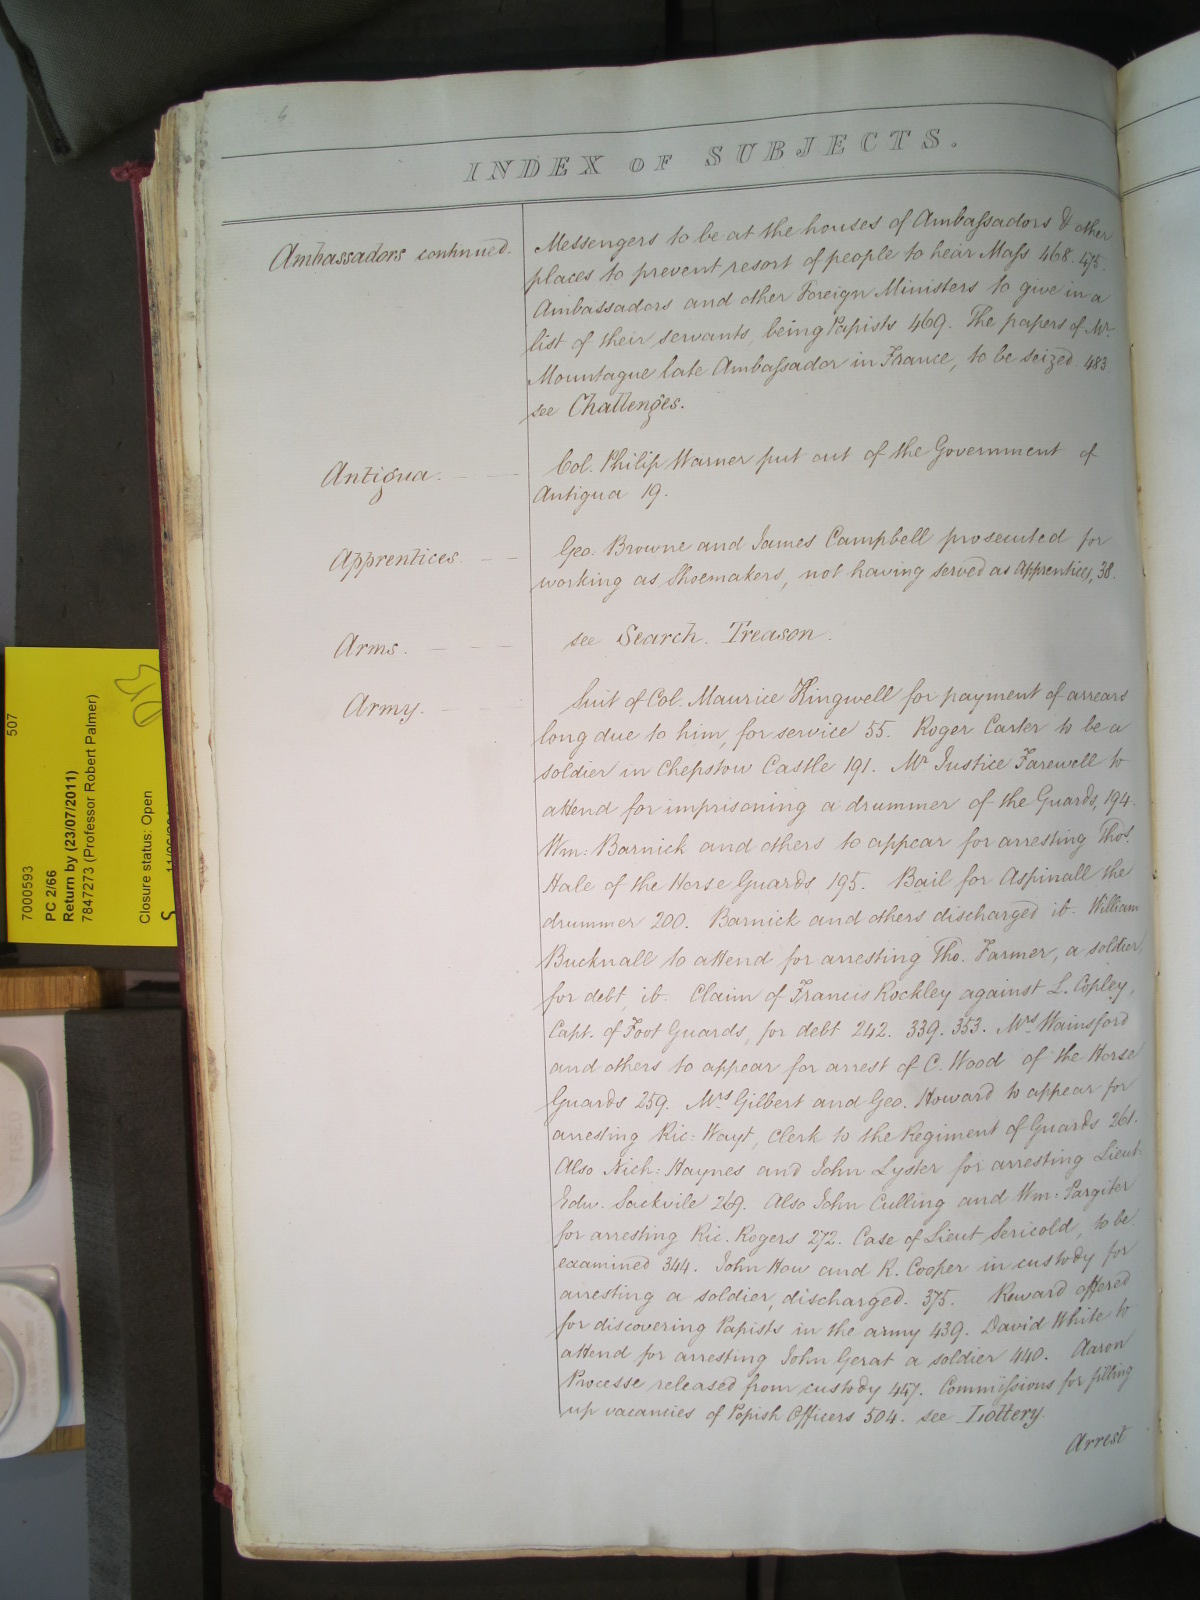 6
INDEX OF SUBJECTS.
Ambassadors continued.
Messengers to be at the houses of Ambassadors & other
places to prevent resort of people to hear Mass 468. 475.
Ambassadors and other Foreign Ministers to give in a
list of their servants, being Papists 469. The papers of Mr.
Mountague late Ambassador in France, to be seized 483
see Challenges.
Antigua.
Col. Philip Warner put out of the Government of
Antigua 19.
Apprentices.
Geo. Browne and James Campbell prosecuted for
working as Shoemakers, not having served as Apprentices, 38.
Arms.
see Search. Treason.
Army.
Suit of Col. Maurice Kingwell for payment of arrears
long due to him, for service 55. Roger Carter to be a
soldier in Chepstow Castle 191. Mr Justice Farewell to
attend for imprisoning a drummer of the Guards, 194.
Wm: Barnick and others to appear for arresting Thos.
Hale of the Horse Guards 195. Bail for Aspinall the
drummer 200. Barnick and others discharged ib. William
Bucknall to attend for arresting Tho. Farmer, a soldier,
for debt, ib. Claim of Francis Rockley against L. Copley,
Capt. of Foot Guards, for debt 242. 339. 353. Mrs Wainsford
and others to appear for arrest of C. Wood of the Horse
Guards 259. Mrs Gilbert and Geo. Howard to appear for
arresting Ric: Wayt, Clerk to the Regiment of Guards 261.
Also Nich: Haynes and John Lyster for arresting Lieut.
Edw. Sackvile 269. Also John Culling and Wm: Pargiter
for arresting Ric. Rogers 272. Case of Lieut Sericold, to be
examined 344. John How and R. Cooper in custody for
arresting a soldier, discharged. 375. Reward offered
for discovering Papists in the army 439. David White to
attend for arresting John Gerat a soldier 440. Aaron
Processe released from custody 447. Commissions for filling
up vacancies of Popish Officers 504. see Lottery.
Arrest
507
7000593
PC 2/66
Return by (23/07/2011)
7847273 (Professor Robert Palmer)
Closure status: Open